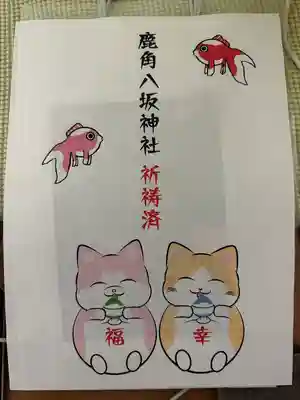 鹿角八坂神社 祈祷済
福
幸